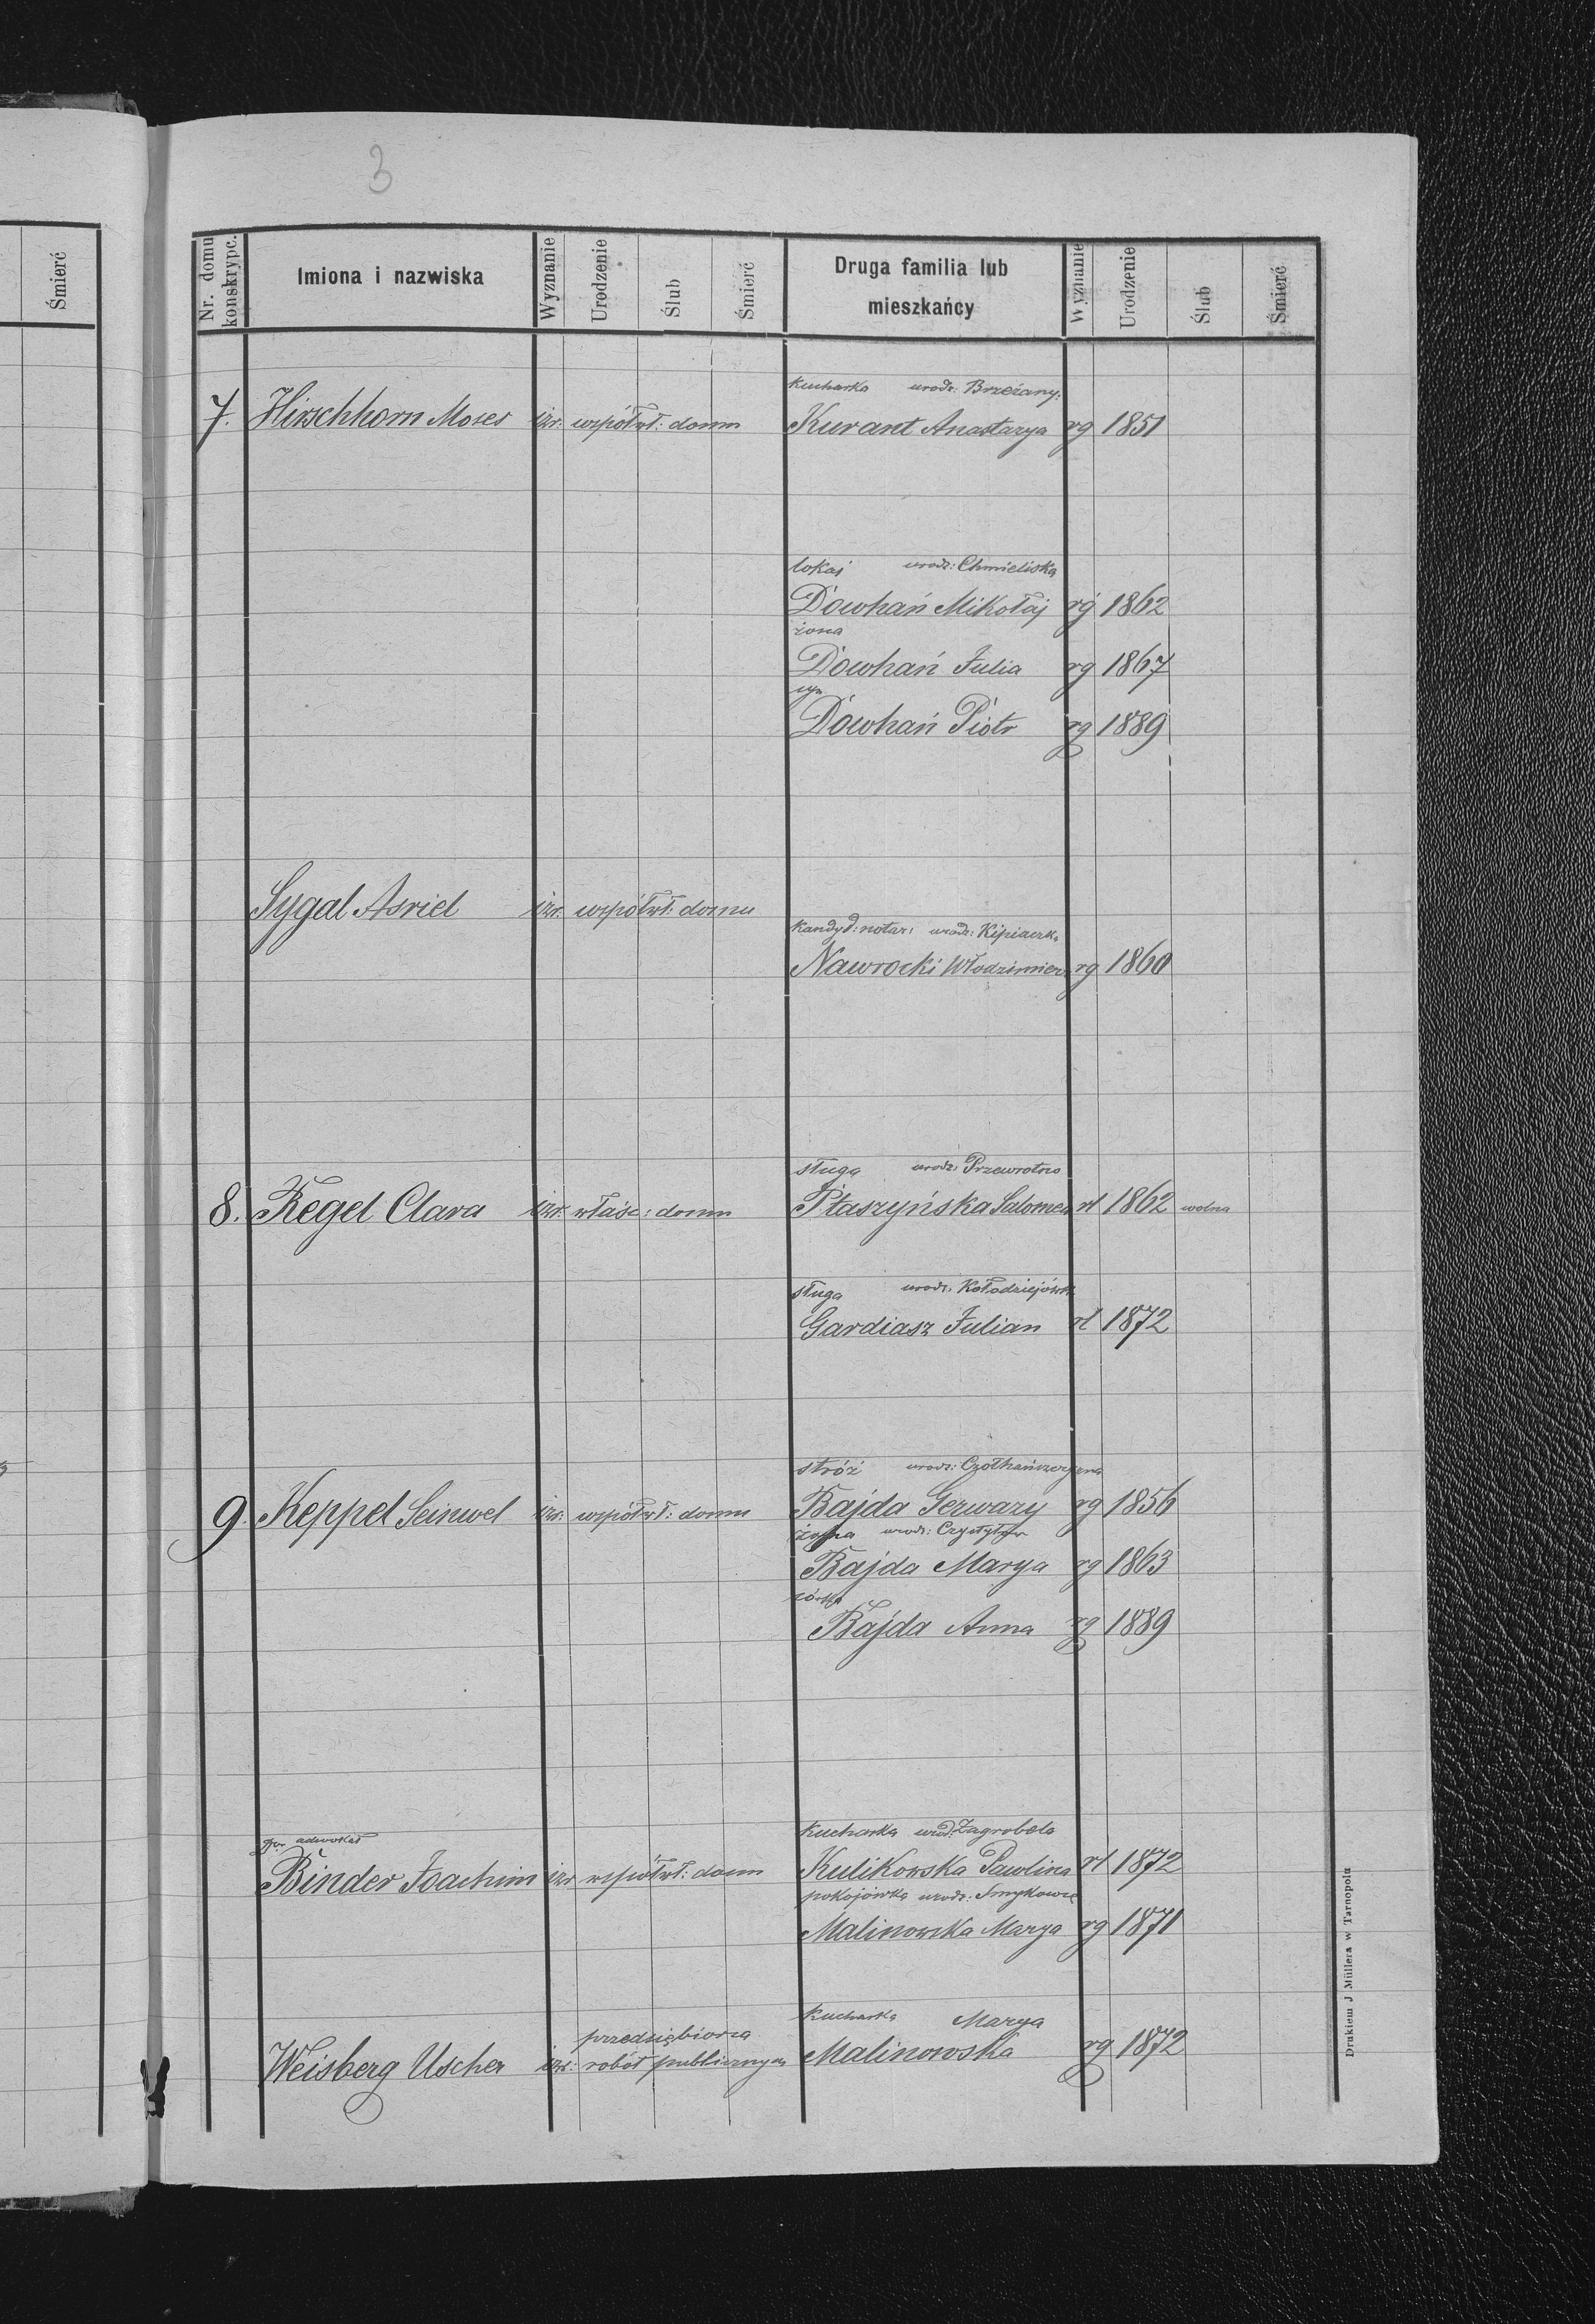 3
Śmierć
Nr. domu konskrypc.
Imiona i nazwiska
Wyznanie
Urodzenie
Ślub
Śmierć
Druga familia lub mieszkańcy
Wyznanie
Urodzenie
Ślub
Śmierć
kucharka urodz: Brzeżany.
7. Hirschhorn Moses izr. współwł: domu Kurant Anastazya rg 1851
lokaj urodz: Chmieliska
Dowhań Mikołaj rg 1862
żona
Dowhań Julia rg 1867
syn
Dowhań Piotr rg 1889
Sygal Asriel izr. współwł: domu
kandyd: notar: urodz: Kipiaczka
Nawrocki Włodzimierz rg 1860
sługa urodz: Przewrotno
8. Kegel Clara izr. właśc: domu Ptaszyńska Salomea rł 1862 wolna
sługa urodz: Kołodziejówka
Gardiasz Julian rł 1872
stróż urodz:
9. Keppel Seinwel izr. współwł: domu Bajda Gerwazy rg 1856
żona urodz:
Bajda Marya rg 1863
córka
Bajda Anna rg 1889
adwokat kucharka urodz: Zagrobela
Binder Joachim izr współwł: domu Kulikowska Pawlina rł 1872
pokojówka urodz: Smykowce
Malinowska Marya rg 1871
przedsiębiorca kucharka Marya
Weisberg Uscher izr. robót publicznych Malinowska rg 1872
Drukiem J Müllera w Tarnopolu